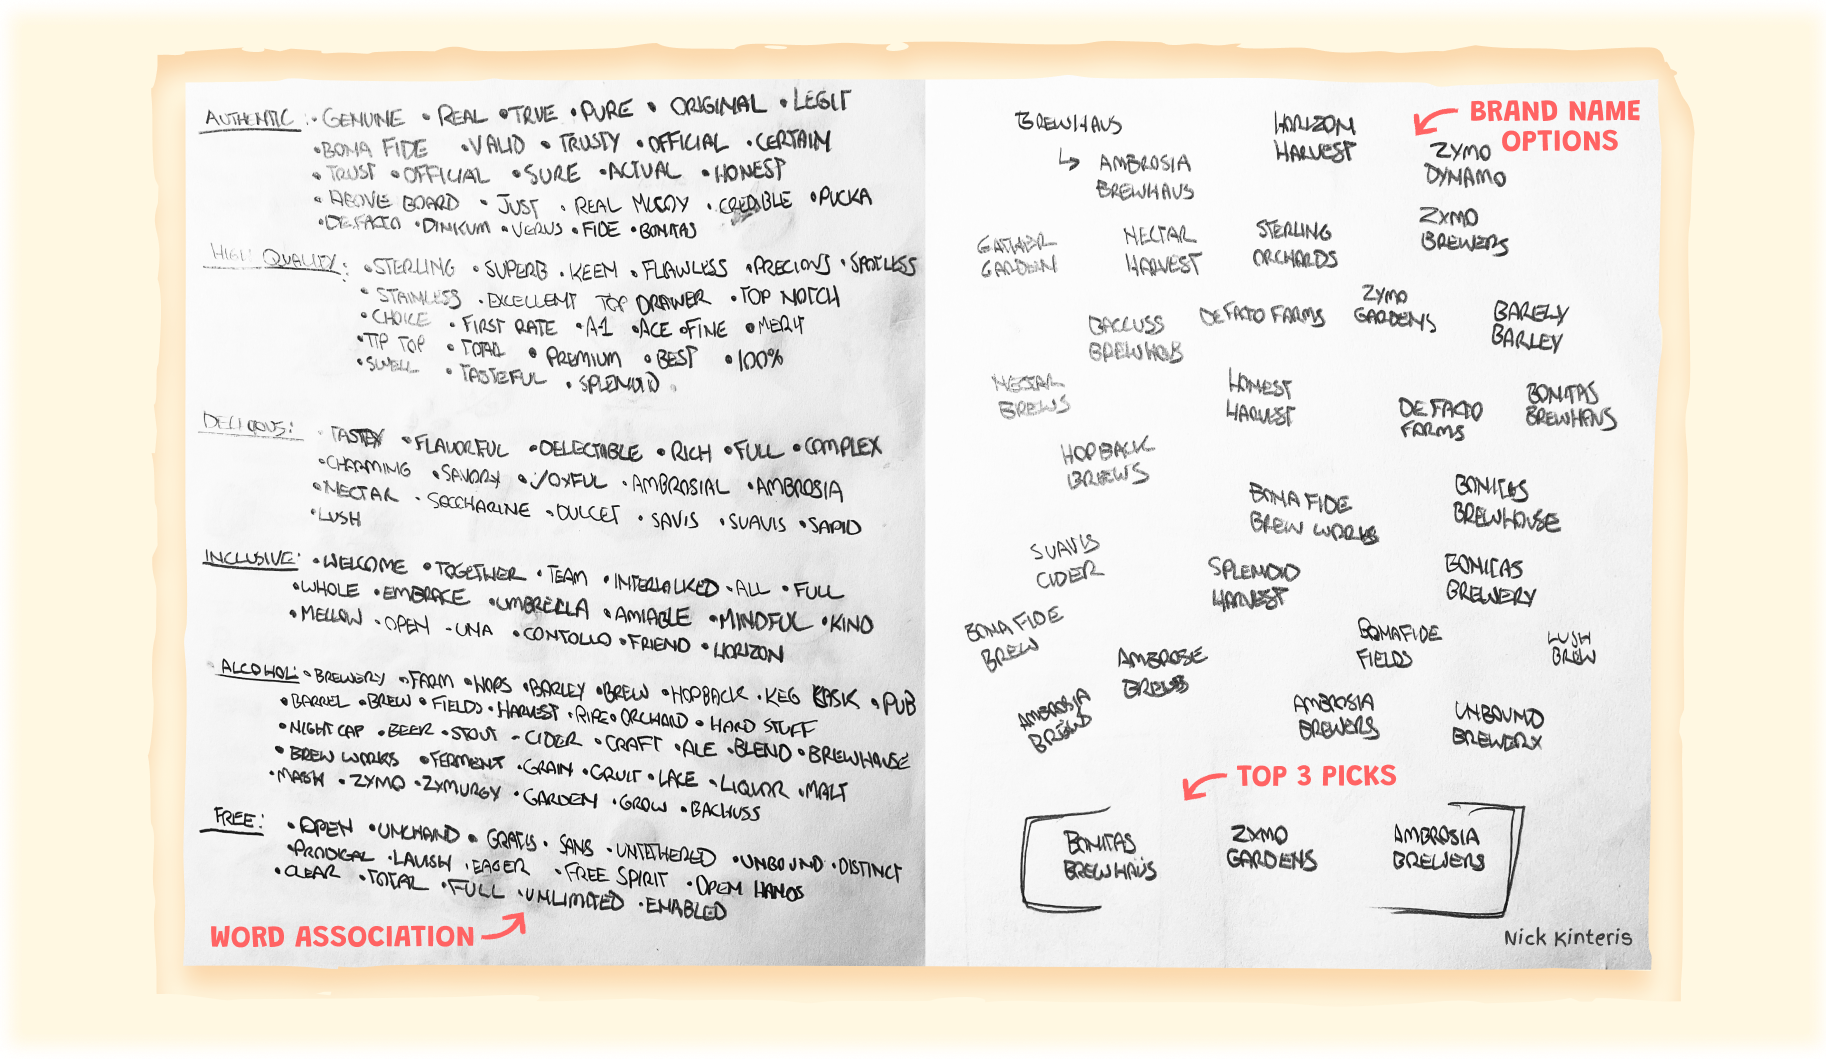 AUTHENTIC: • GENUINE • REAL • TRUE • PURE • ORIGINAL • LEGIT
• BONA FIDE • VALID • TRUSTY • OFFICIAL • CERTAIN
• TRUST • OFFICIAL • SURE • ACTUAL • HONEST
• ABOVE BOARD • JUST • REAL MCCOY • CREDIBLE • PUCKA
• DEFACTO • DINKUM • VERUS • FIDE • BONITAS
HIGH QUALITY: • STERLING • SUPERB • KEEN • FLAWLESS • PRECIOUS • SPOTLESS
• STAINLESS • EXCELLENT TOP DRAWER • TOP NOTCH
• CHOICE • FIRST RATE • A-1 • ACE • FINE • MERIT
• TIP TOP • TOTAL • PREMIUM • BEST • 100%
• SWELL • TASTEFUL • SPLENDID
DELICIOUS: • TASTEY • FLAVORFUL • DELECTABLE • RICH • FULL • COMPLEX
• CHARMING • SAVORY • JOYFUL • AMBROSIAL • AMBROSIA
• NECTAR • SACCHARINE • DULCET • SAVIS • SUAVIS • SAPID
• LUSH
INCLUSIVE: • WELCOME • TOGETHER • TEAM • INTERLALKED • ALL • FULL
• WHOLE • EMBRACE • UMBRELLA • AMIABLE • MINDFUL • KIND
• MELLOW • OPEN • UNA • CONTOLLO • FRIEND • HORIZON
ALCOHOL: • BREWERY • FARM • HOPS • BARLEY • BREW • HOPBACK • KEG • PUB
• BARREL • BREW • FIELDS • HARVEST • RIPE • ORCHARD • HARD STUFF
• NIGHT CAP • BEER • STOUT • CIDER • CRAFT • ALE • BLEND • BREWHAUSE
• BREW WORKS • FERMENT • GRAIN • GRUIT • LACE • LIQUOR • MALT
• MASH • ZYMO • ZYMURGY • GARDEN • GROW • BACHUSS
FREE: • OPEN • UNCHAND • GRATIS • SANS • UNTETHERED • UNBOUND • DISTINCT
• PRODIGAL • LAVISH • EAGER • FREE SPIRIT • OPEN HANDS
• CLEAR • TOTAL • FULL • UNLIMITED • ENABLED
WORD ASSOCIATION
BRAND NAME
OPTIONS
BREWHAUS
AMBROSIA
BREWHAUS
HORIZON
HARVEST
ZYMO
DYNAMO
GATHER
GARDEN
NECTAR
HARVEST
STERLING
ORCHARDS
ZYMO
BREWERS
BACCUSS
BREWHOB
DEFACTO FARMS
ZYMO
GARDENS
BARELY
BARLEY
NECTAR
BREWS
HONEST
HARVEST
DEFACTO
FARMS
BONITAS
BREWHAUS
HOPBACK
BREWS
BONA FIDE
BREW WORKS
BONITAS
BREWHOUSE
SUAVIS
CIDER
SPLENDID
HARVEST
BONITAS
BREWERY
BONA FIDE
BREW
AMBROSE
BREWS
BONAFIDE
FIELDS
LUSH
BREW
AMBROSIA
BREWD
AMBROSIA
BREWERS
UNBOUND
BREWERY
TOP 3 PICKS
BONITAS
BREWHAÜS
ZYMO
GARDENS
AMBROSIA
BREWERS
Nick Kinteris